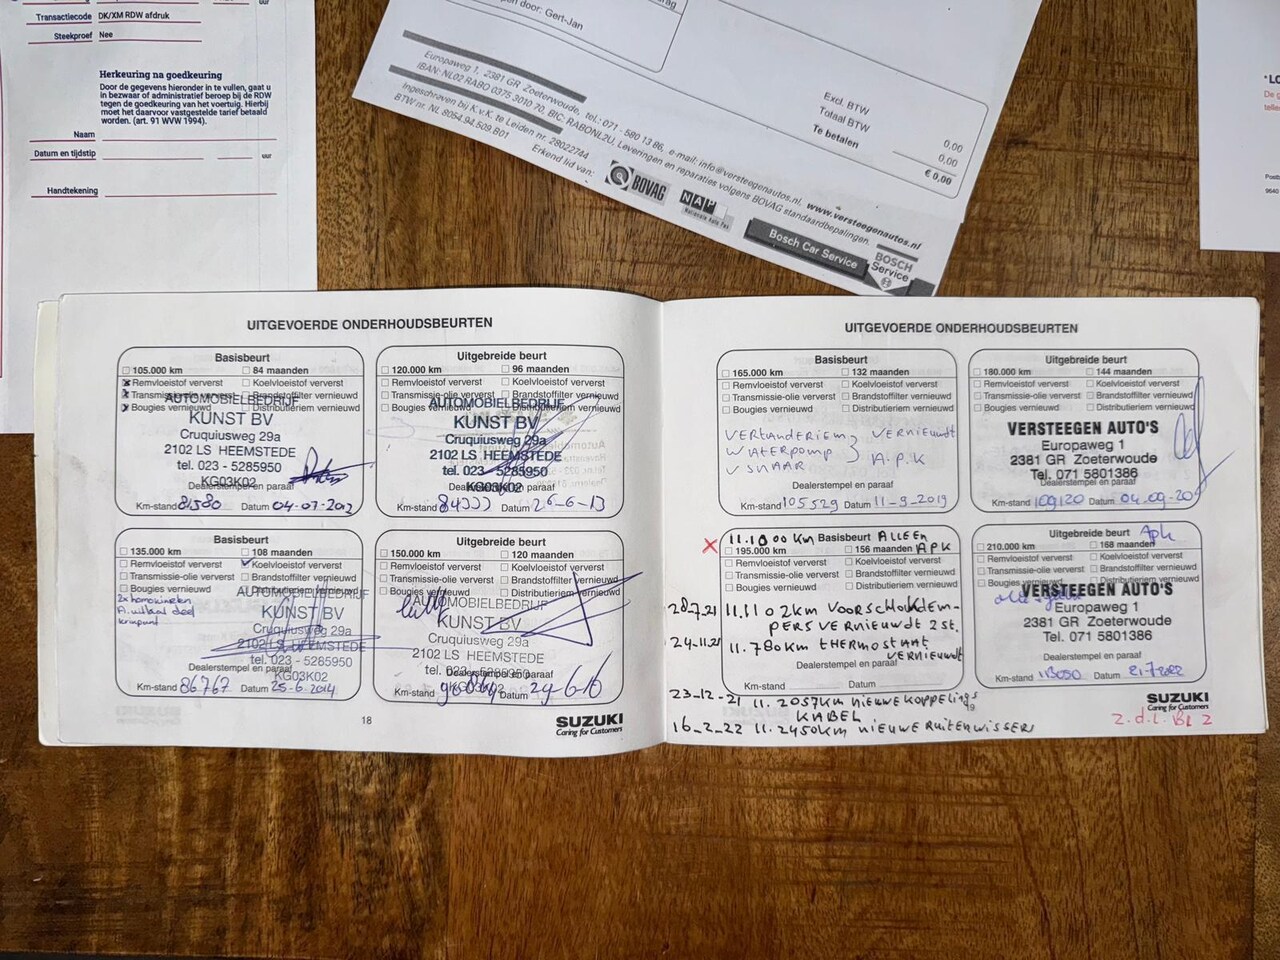 Transactiecode DK/XM RDW afdruk
Steekproef Nee
Herkeuring na goedkeuring
Door de gegevens hieronder in te vullen, gaat u
in bezwaar of administratief beroep bij de RDW
tegen de goedkeuring van het voertuig. Hierbij
moet het daarvoor vastgestelde tarief betaald
worden. (art. 91 WVW 1994).
Naam
Datum en tijdstip
uur
Handtekening
door: Gert-Jan
Excl. BTW 0,00
Totaal BTW 0,00
Te betalen € 0,00
Europaweg 1, 2381 GR Zoeterwoude, tel.: 071 - 580 13 86, e-mail: info@versteegenautos.nl, www.versteegenautos.nl
IBAN: NL02 RABO 0375 3010 70, BIC: RABONL2U, Leveringen en reparaties volgens BOVAG standaardbepalingen.
Ingeschreven bij K.v.K. te Leiden nr. 28022744
BTW nr. NL 8054.94.509.B01
Erkend lid van:
BOVAG
NAP
Nationale Auto Pas
Bosch Car Service
BOSCH
Service
UITGEVOERDE ONDERHOUDSBEURTEN
Basisbeurt
105.000 km 84 maanden
Remvloeistof ververst Koelvloeistof ververst
Transmissie-olie ververst Brandstoffilter vernieuwd
Bougies vernieuwd Distributieriem vernieuwd
AUTOMOBIELBEDRIJF
KUNST BV
Cruquiusweg 29a
2102 LS HEEMSTEDE
tel. 023 - 5285950
KG03K02
Dealerstempel en paraaf
Km-stand 81580 Datum 04-07-2012
Uitgebreide beurt
120.000 km 96 maanden
Remvloeistof ververst Koelvloeistof ververst
Transmissie-olie ververst Brandstoffilter vernieuwd
Bougies vernieuwd Distributieriem vernieuwd
AUTOMOBIELBEDRIJF
KUNST BV
Cruquiusweg 29a
2102 LS HEEMSTEDE
tel. 023 - 5285950
KG03K02
Dealerstempel en paraaf
Km-stand Datum 26-6-13
Basisbeurt
135.000 km 108 maanden
Remvloeistof ververst Koelvloeistof ververst
Transmissie-olie ververst Brandstoffilter vernieuwd
Bougies vernieuwd Distributieriem vernieuwd
AUTOMOBIELBEDRIJF
KUNST BV
Cruquiusweg 29a
2102 LS HEEMSTEDE
tel. 023 - 5285950
KG03K02
Dealerstempel en paraaf
Km-stand 86767 Datum 25-6-2014
Uitgebreide beurt
150.000 km 120 maanden
Remvloeistof ververst Koelvloeistof ververst
Transmissie-olie ververst Brandstoffilter vernieuwd
Bougies vernieuwd Distributieriem vernieuwd
AUTOMOBIELBEDRIJF
KUNST BV
Cruquiusweg 29a
2102 LS HEEMSTEDE
tel. 023-5285950
KG03K02
Dealerstempel en paraaf
Km-stand Datum
18
SUZUKI
Caring for Customers
UITGEVOERDE ONDERHOUDSBEURTEN
Basisbeurt
165.000 km 132 maanden
Remvloeistof ververst Koelvloeistof ververst
Transmissie-olie ververst Brandstoffilter vernieuwd
Bougies vernieuwd Distributieriem vernieuwd
VERNIEUWDT
WATERPOMP
V SNAAR A.P.K
Dealerstempel en paraaf
Km-stand 105529 Datum 11-9-2019
Uitgebreide beurt
180.000 km 144 maanden
Remvloeistof ververst Koelvloeistof ververst
Transmissie-olie ververst Brandstoffilter vernieuwd
Bougies vernieuwd Distributieriem vernieuwd
VERSTEEGEN AUTO'S
Europaweg 1
2381 GR Zoeterwoude
Tel. 071 5801386
Dealerstempel en paraaf
Km-stand 109120 Datum 04-09-20
X 11.1000 Km Basisbeurt ALLEEN
195.000 km 156 maanden APK
Remvloeistof ververst Koelvloeistof ververst
Transmissie-olie ververst Brandstoffilter vernieuwd
Bougies vernieuwd Distributieriem vernieuwd
28.7.21 11.1102km VOORSCHOKDEM-
PERS VERNIEUWDT 2 ST.
24.11.21 11.780km THERMOSTAAT
VERNIEUWDT
Dealerstempel en paraaf
Km-stand Datum
23-12-21 11.2057km NIEUWE KOPPELINGS
KABEL
16-2-22 11.2450km NIEUWE RUITENWISSERS
Uitgebreide beurt Apk
210.000 km 168 maanden
Remvloeistof ververst Koelvloeistof ververst
Transmissie-olie ververst Brandstoffilter vernieuwd
Bougies vernieuwd Distributieriem vernieuwd
VERSTEEGEN AUTO'S
Europaweg 1
2381 GR Zoeterwoude
Tel. 071 5801386
Dealerstempel en paraaf
Km-stand 113050 Datum 21-7-2022
SUZUKI
Caring for Customers
Z.O.Z. BLZ